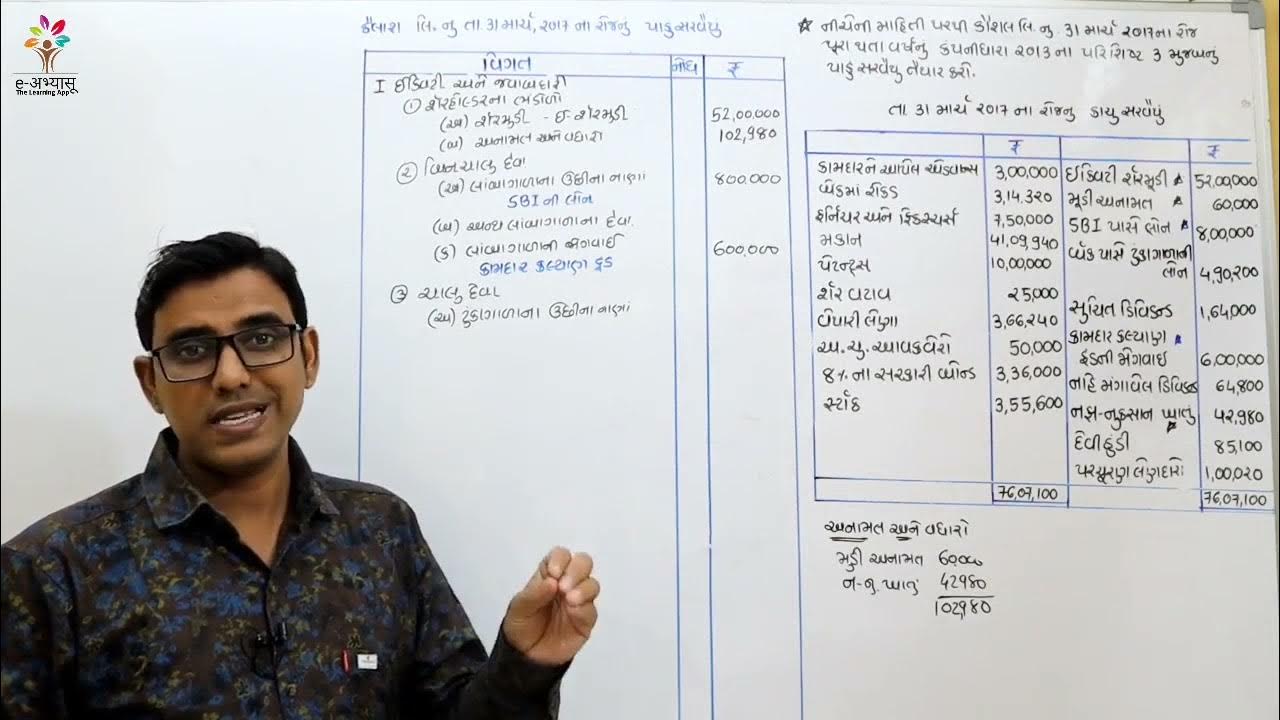 e-अभ्यासू
The Learning App
કૈલાશ લિ. નુ તા. 31 માર્ચ, ૨૦૧૭ ના રોજનું પાકુ સરવૈયું
વિગત નોંધ ₹
I ઈક્વિટી અને જવાબદારી
① શેરહોલ્ડરના ભંડોળો
(અ) શેરમૂડી - ઈ-શેરમૂડી 52,00,000
(બ) અનામત અને વધારો 102,980
② બિનચાલુ દેવા
(અ) લાંબાગાળાના ઉછીના નાણાં 800,000
SBI ની લોન
(બ) અન્ય લાંબાગાળાના દેવા.
(ક) લાંબાગાળાની જોગવાઈ 600,000
કામદાર કલ્યાણ ફંડ
③ ચાલુ દેવા
(અ) ટુંકાગાળાના ઉછીના નાણાં
★ નીચેની માહિતી પરથી કૌશલ લિ. નુ. 31 માર્ચ ૨૦૧૭ના રોજ
પૂરા થતા વર્ષનું કંપનીધારા ૨૦૧૩ ના પરિશિષ્ટ ૩ મુજબનું
પાકું સરવૈયુ તૈયાર કરો.
તા. 31 માર્ચ ૨૦૧૭ ના રોજનુ કાચુ સરવૈયું
₹ ₹
કામદારને આપેલ એડવાન્સ 3,00,000 ઈક્વિટી શેરમૂડી 52,00,000
બેંકમાં રોકડ 3,14,320 મૂડી અનામત 60,000
ફર્નિચર અને ફિક્સ્ચર્સ 7,50,000 SBI પાસે લોન 8,00,000
મકાન 41,09,940 બેંક પાસે ટુંકાગાળાની
લોન 4,90,200
પેટન્ટ્સ 10,00,000
શેર વટાવ 25,000 સુચિત ડિવિડન્ડ 1,64,000
વેપારી લેણા 3,66,240 કામદાર કલ્યાણ
ફંડની જોગવાઈ 6,00,000
અ. ચુ. આવકવેરો 50,000
8%ના સરકારી બોન્ડ 3,36,000 નહિ મંગાયેલ ડિવિડન્ડ 64,800
સ્ટોક 3,55,600 નફા-નુકસાન ખાતું 42,980
દેવીહુંડી 85,100
પરચૂરણ લેણદારો 1,00,020
76,07,100 76,07,100
અનામત અને વધારો
મુડી અનામત 60000
ન-નુ. ખાતું 42980
102,980